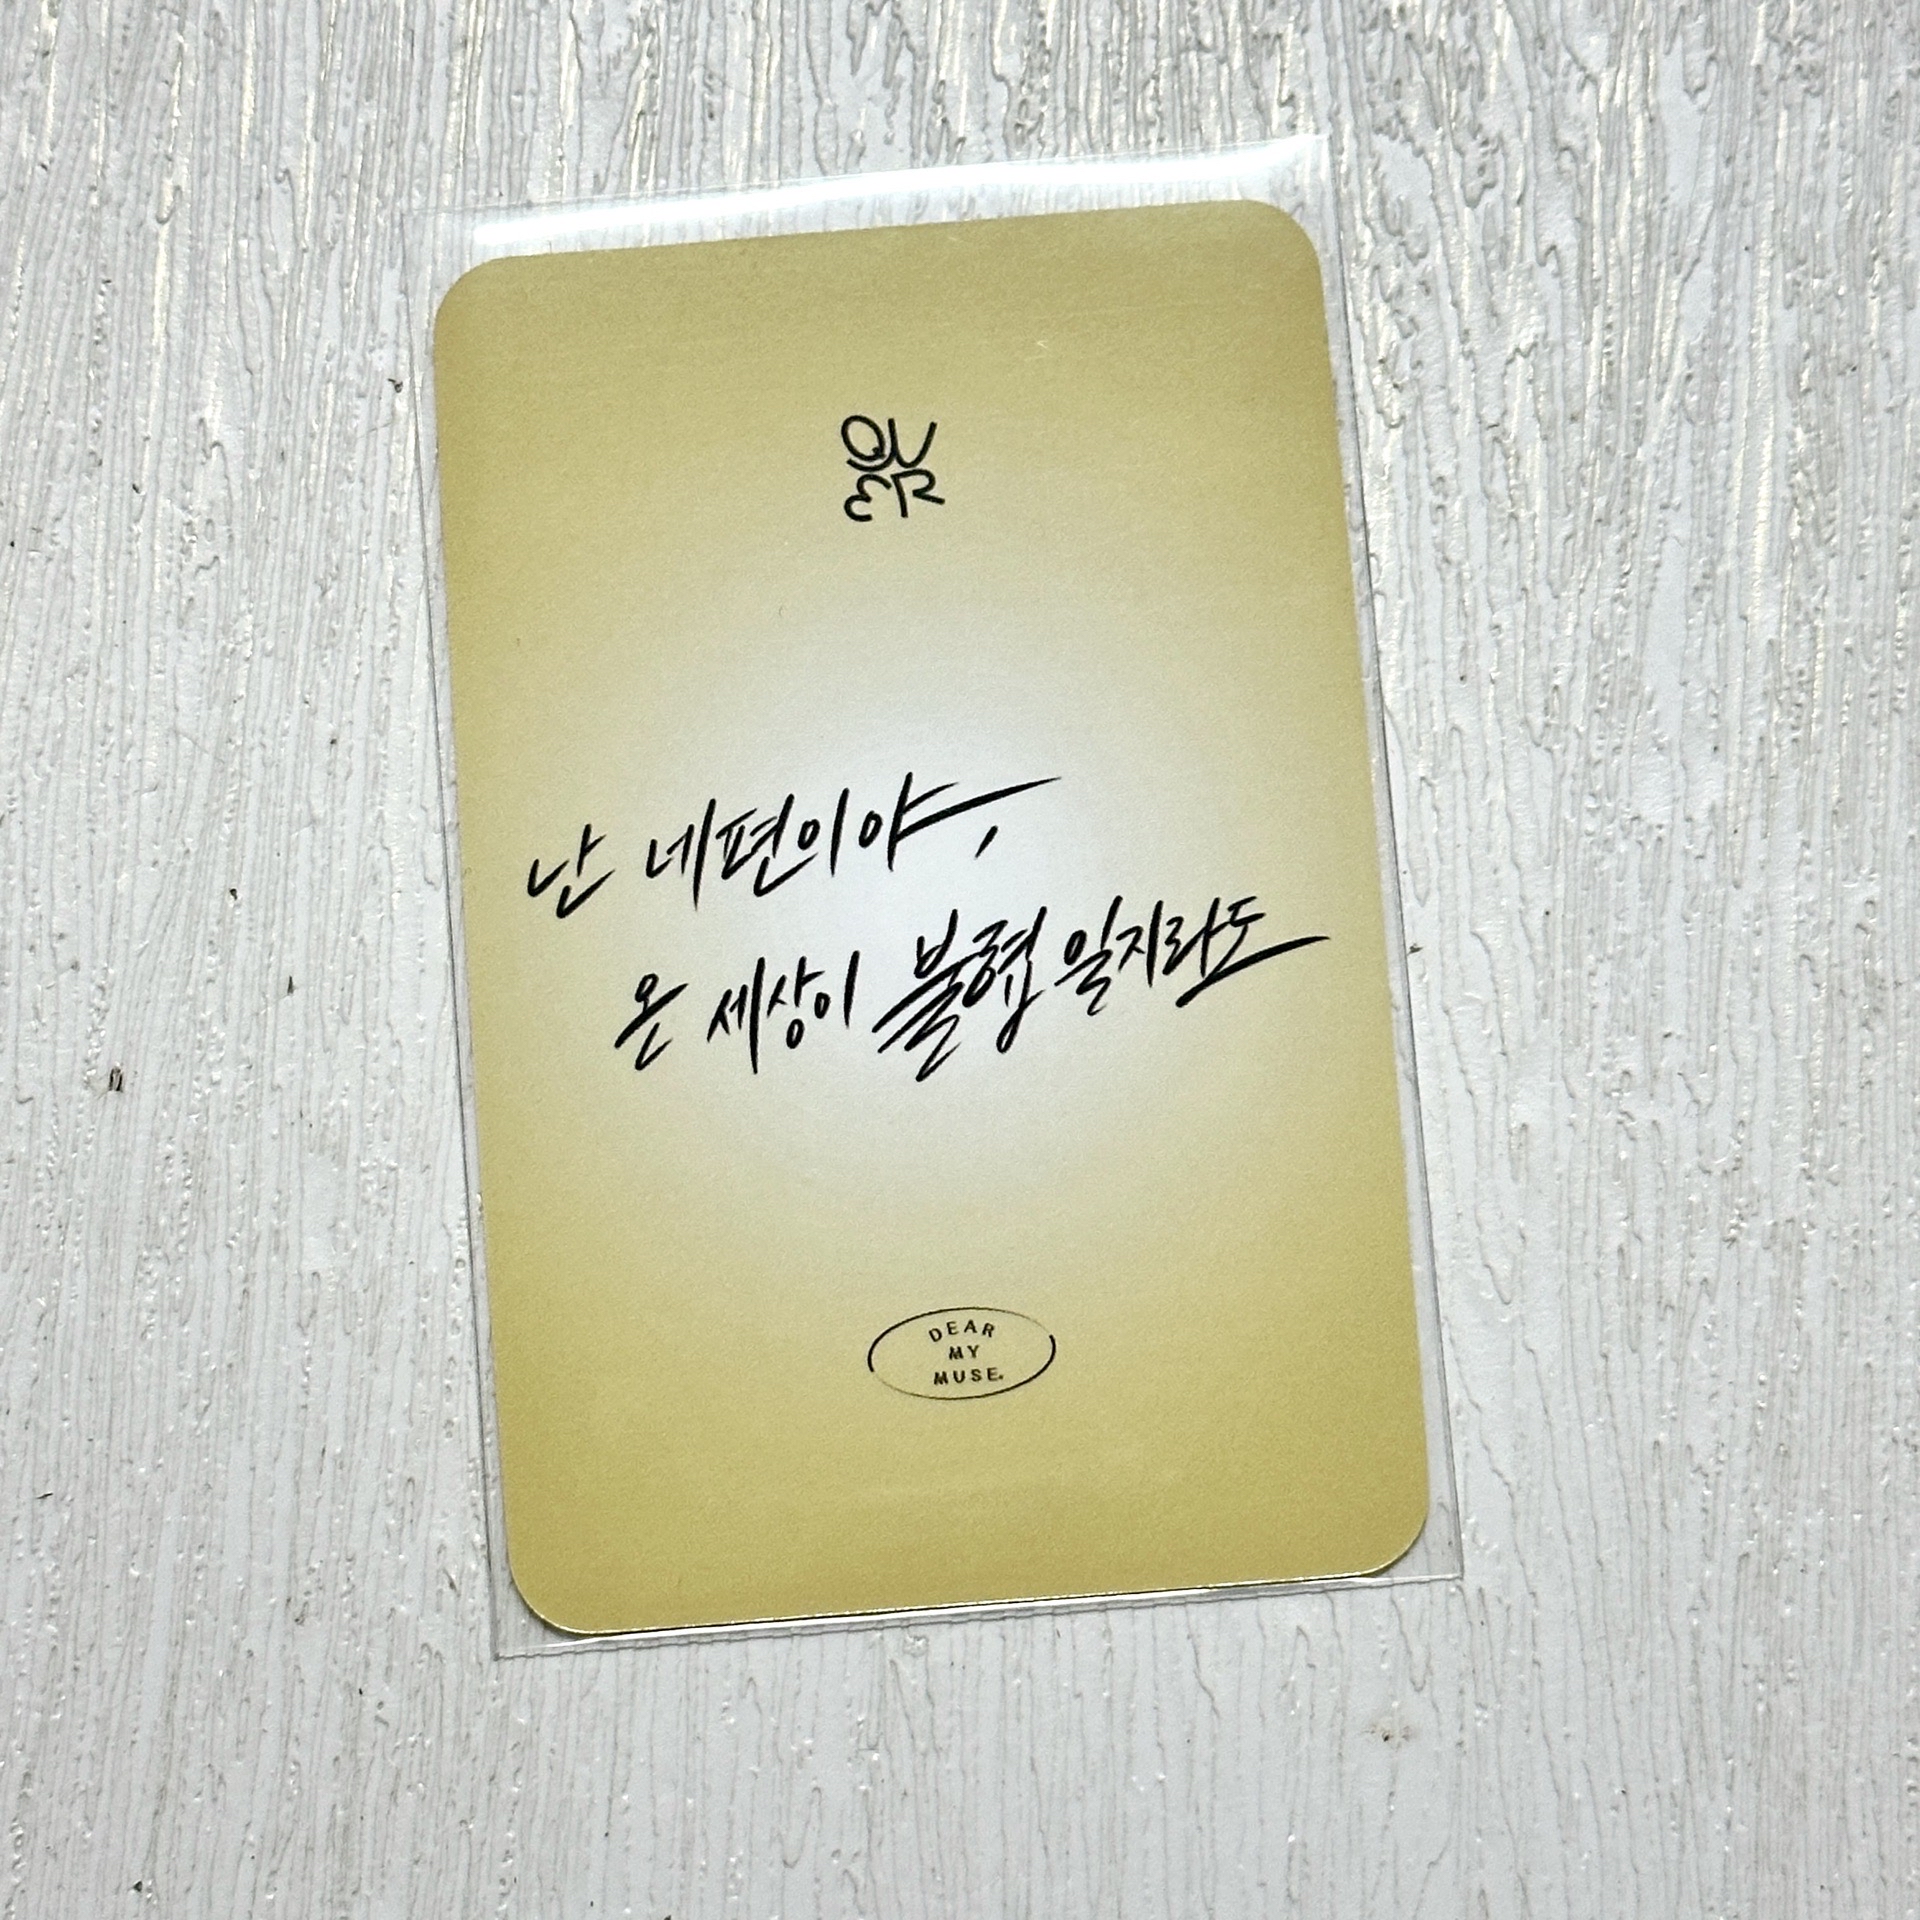 QW
ER
난 네편의야,
온 세상이 불협일지라도
DEAR
MY
MUSE.